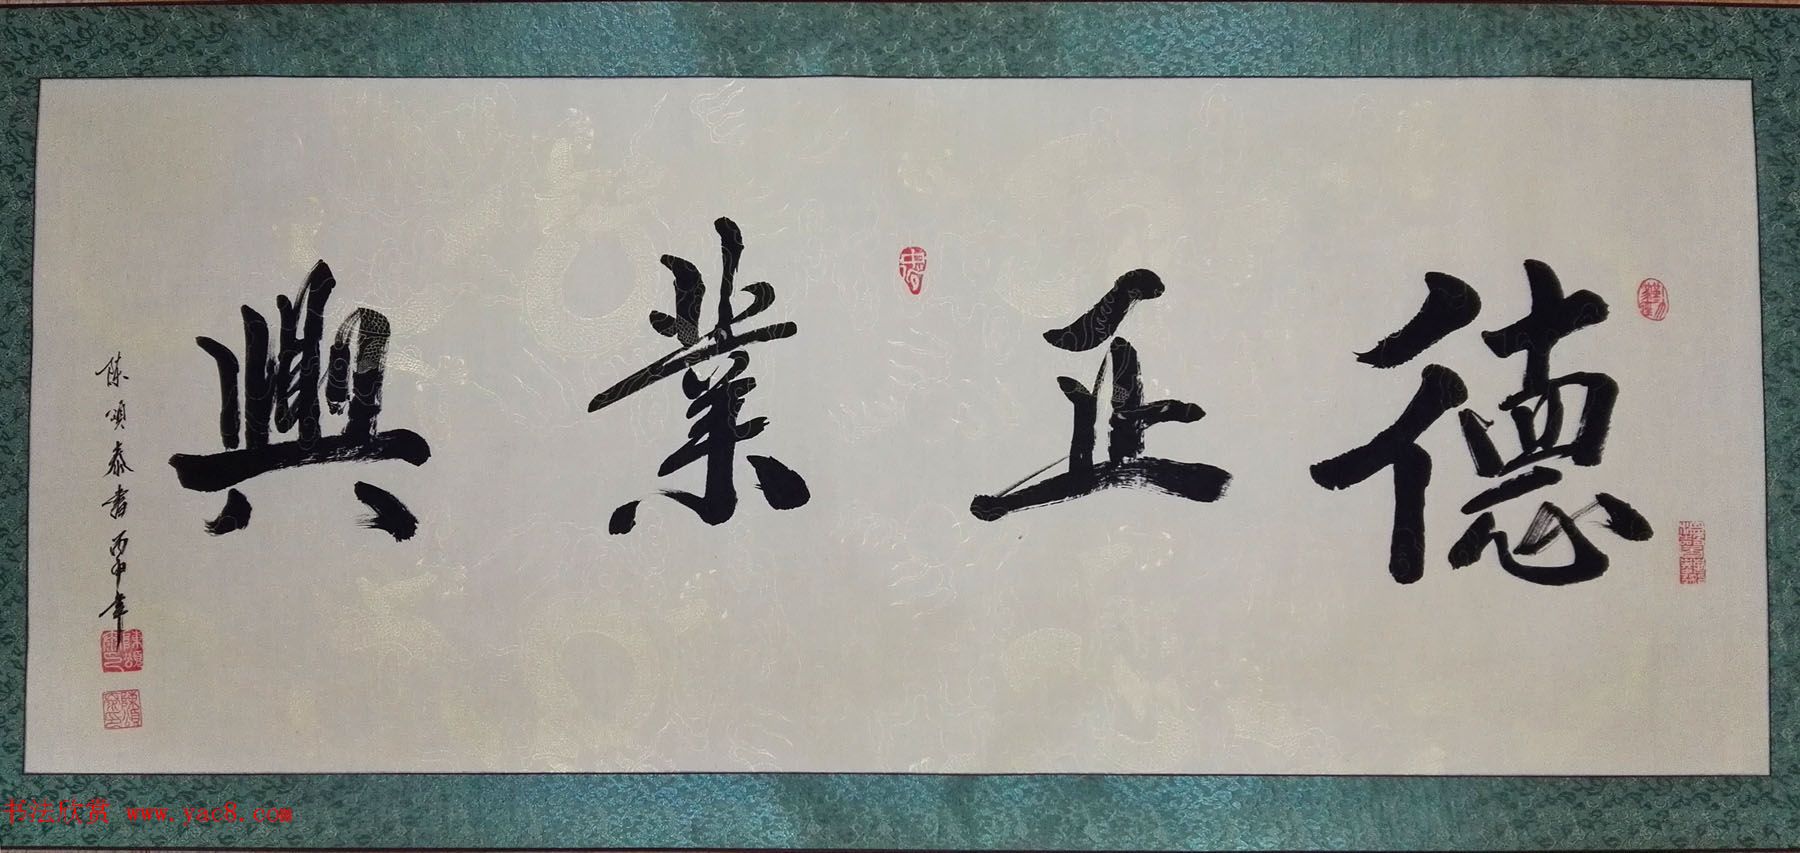 德正業興
陈頌泰書丙申年
书法欣赏 www.yac8.com